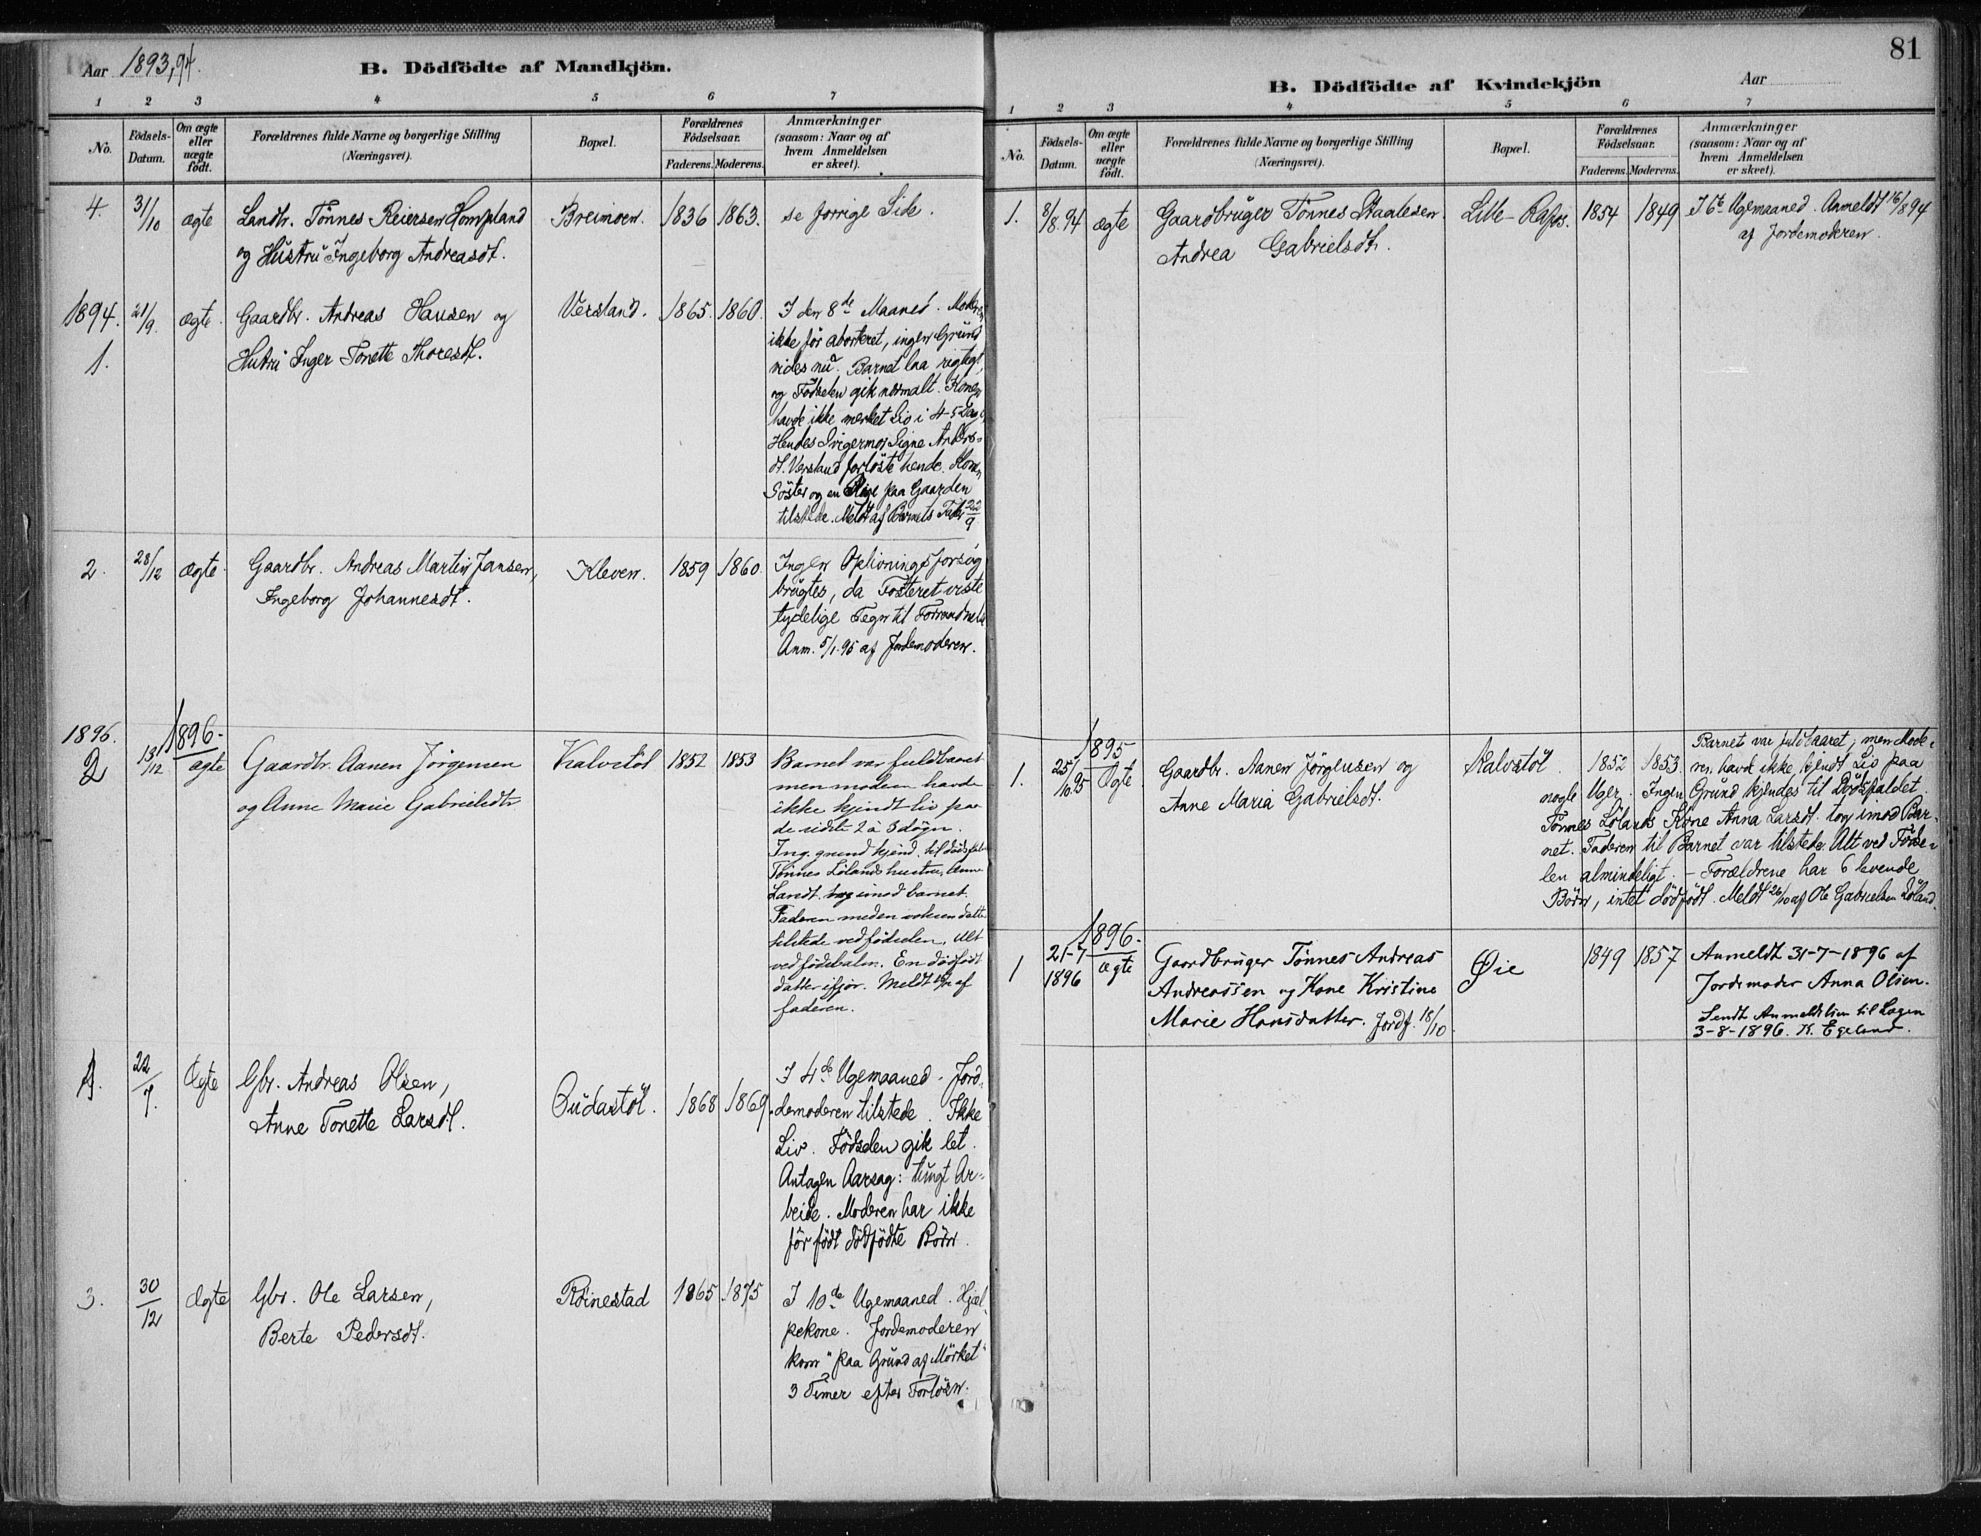 Aar 1893,94.
B. Dödfödte af Mandkjön.
1 2 3 4 5 6 7
No.
Födsels-Datum.
Om ægte eller uægte födt.
Forældrenes fulde Navne og borgerlige Stilling (Næringsvei).
Bopæl.
Forældrenes Födselsaar.
Faderens. Moderens.
Anmærkninger (saasom: Naar og af hvem Anmeldelsen er skeet).
4. 31/10 ægte Landbr. Tönnes Reiersen Hompland Breimoen. 1836 1863. se forrige Side.
og Hustru Ingeborg Andreasdt.
1894. 21/9. ægte. Gaardbr. Andreas Hansen og Verstand. 1865. 1860. I den 8de Maaned. Moderen
1. Hustru Inger Tonette Thoresdt.
ikke før aborteret, ingen Grund
vides nu. Barnet laa rigtigt,
og Fødselen gik normalt. Konen
havde ikke mærket Liv i 4-5 Dage
Hendes Svigermor Signe Anders-
dt. Verstand forløste hende.
Söster og en Pige paa Gaarden
tilstede. Meldt af Barnets Fader 22/9
2. 28/12 ægte. Gaardbr. Andreas Martin Jansen, Kleven. 1859 1860. Ingen Oplivningsforsøg
Ingeborg Johannesdt.
brugtes, da Fosteret viste
tydelige Tegn til Forraadnelse
Anm. 5/1-95 af Jordemoderen.
1896. 1896.
2 13/12 ægte Gaardbr. Aanen Jörgensen Kalvstöl 1852 1853 Barnet var fuldbaaret
og Anne Marie Gabrielsdtr.
men moderen havde
ikke kjendt liv paa
de sidste 2 à 3 døgn.
Ing. grund kjend. til dødsfal
Tönnes Lölands hustru, Anne
Larsdt. tog imod barnet.
Faderen med en voksen datter
tilstede ved fødselen. Alt
ved fødebalen. En dødfødt
datter ifjor. Meldt af
faderen.
1. 22/7. Ægte Gbr. Andreas Olsen, 1868 1869. I 4de Ugemaaned. Jord-
Anne Tonette Larsdt.
demoderen tilstede. Ikke
Liv. Födselen gik let.
Antagen Aarsag: tungt Ar-
beide. Moderen har ikke
för födt dödfödte Börn.
3. 30/12 Ægte Gbr. Ole Larsen, Röinestad 1865 1875 I 10de Ugemaaned. Hjæl-
Berte Pedersdt.
pekone. Jordemoderen
kom "paa Grund af Mörket"
3 Timer efter Forlösn.
81
B. Dödfödte af Kvindekjön
Aar
1 2 3 4 5 6 7
No.
Födsels-Datum.
Om ægte eller uægte födt.
Forældrenes fulde Navne og borgerlige Stilling (Næringsvei).
Bopæl.
Forældrenes Födselsaar.
Faderens. Moderens.
Anmærkninger (saasom: Naar og af hvem Anmeldelsen er skeet).
1. 8/8.94 ægte Gaardbruger Tönnes Staalesen Lille- 1854 1849 I 6te Ugemaaned. Anmeldt 16/8 94
Andrea Gabrielsdt.
af Jordemoderen.
1895
1. 25/10.95 Ægte Gaardbr. Aanen Jørgensen og Kalvstöl. 1852 1853. Barnet var fuldbaaret, men Mode-
Anne Maria Gabrielsdt.
ren havde ikke kjendt Liv paa
nogle Uger. Ingen Grund kjendes til Dödsfaldet.
Tönnes Lölands Kone Anna Larsdt. tog imod Bar-
net. Faderen til Barnet var tilstede. Alt ved Födse-
len almindeligt. - Forældrene har 6 levende
Börn, intet dödfödt. Meldt 26/10 af Ole Gabrielsen Löland.
1896.
1 21-7 1896 ægte Gaardbruger Tønnes Andreas Øie 1849 1857 Anmeldt 31-7-1896 af
Andreassen og Kone Kristine
Jordemoder Anna Olsen.
Marie Hansdatter. Jordf. 18/10
Sendt Anmeldelsen til Lagen
3-8-1896. K. Egeland.